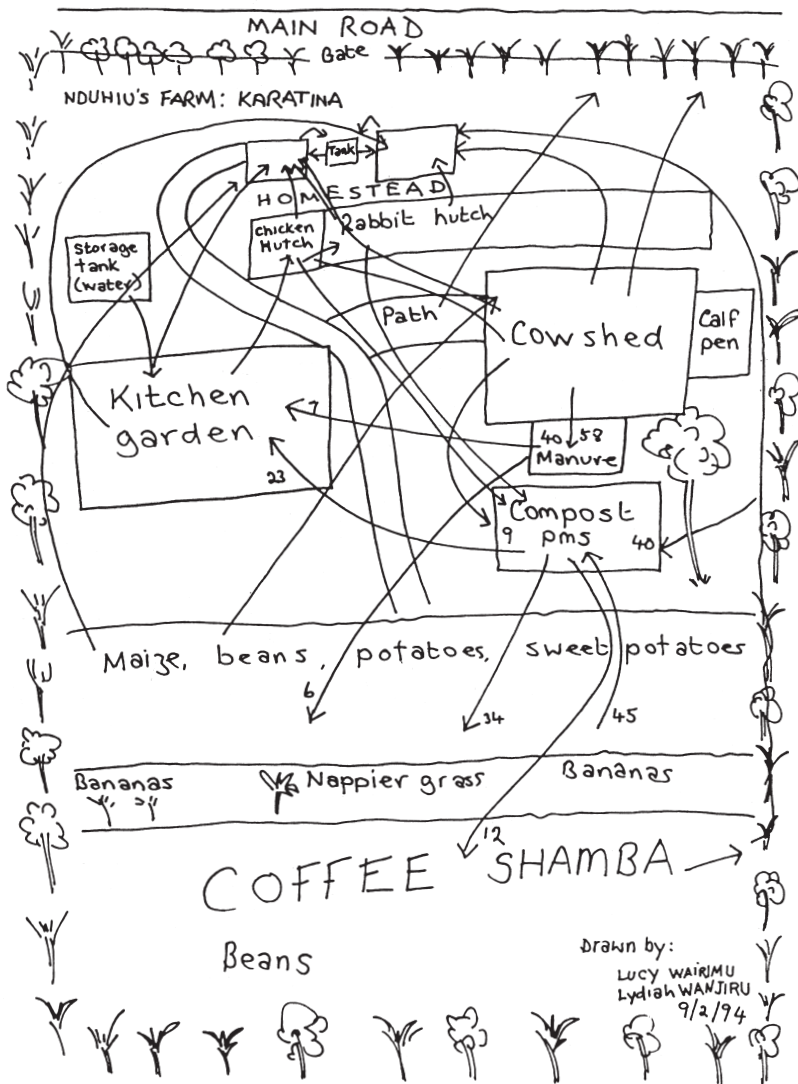 MAIN ROAD
Gate
NDUHIU'S FARM: KARATINA
Tank
HOMESTEAD
Chicken
Hutch
Rabbit hutch
Storage
tank
(water)
Path
Cowshed
Calf
pen
Kitchen
garden
7
40 58
Manure
23
Compost
9 pms 40
Maize, beans, potatoes, sweet potatoes
6
34
45
Bananas
Nappier grass
Bananas
12
COFFEE SHAMBA
Beans
Drawn by:
LUCY WAIRIMU
Lydiah WANJIRU
9/2/94